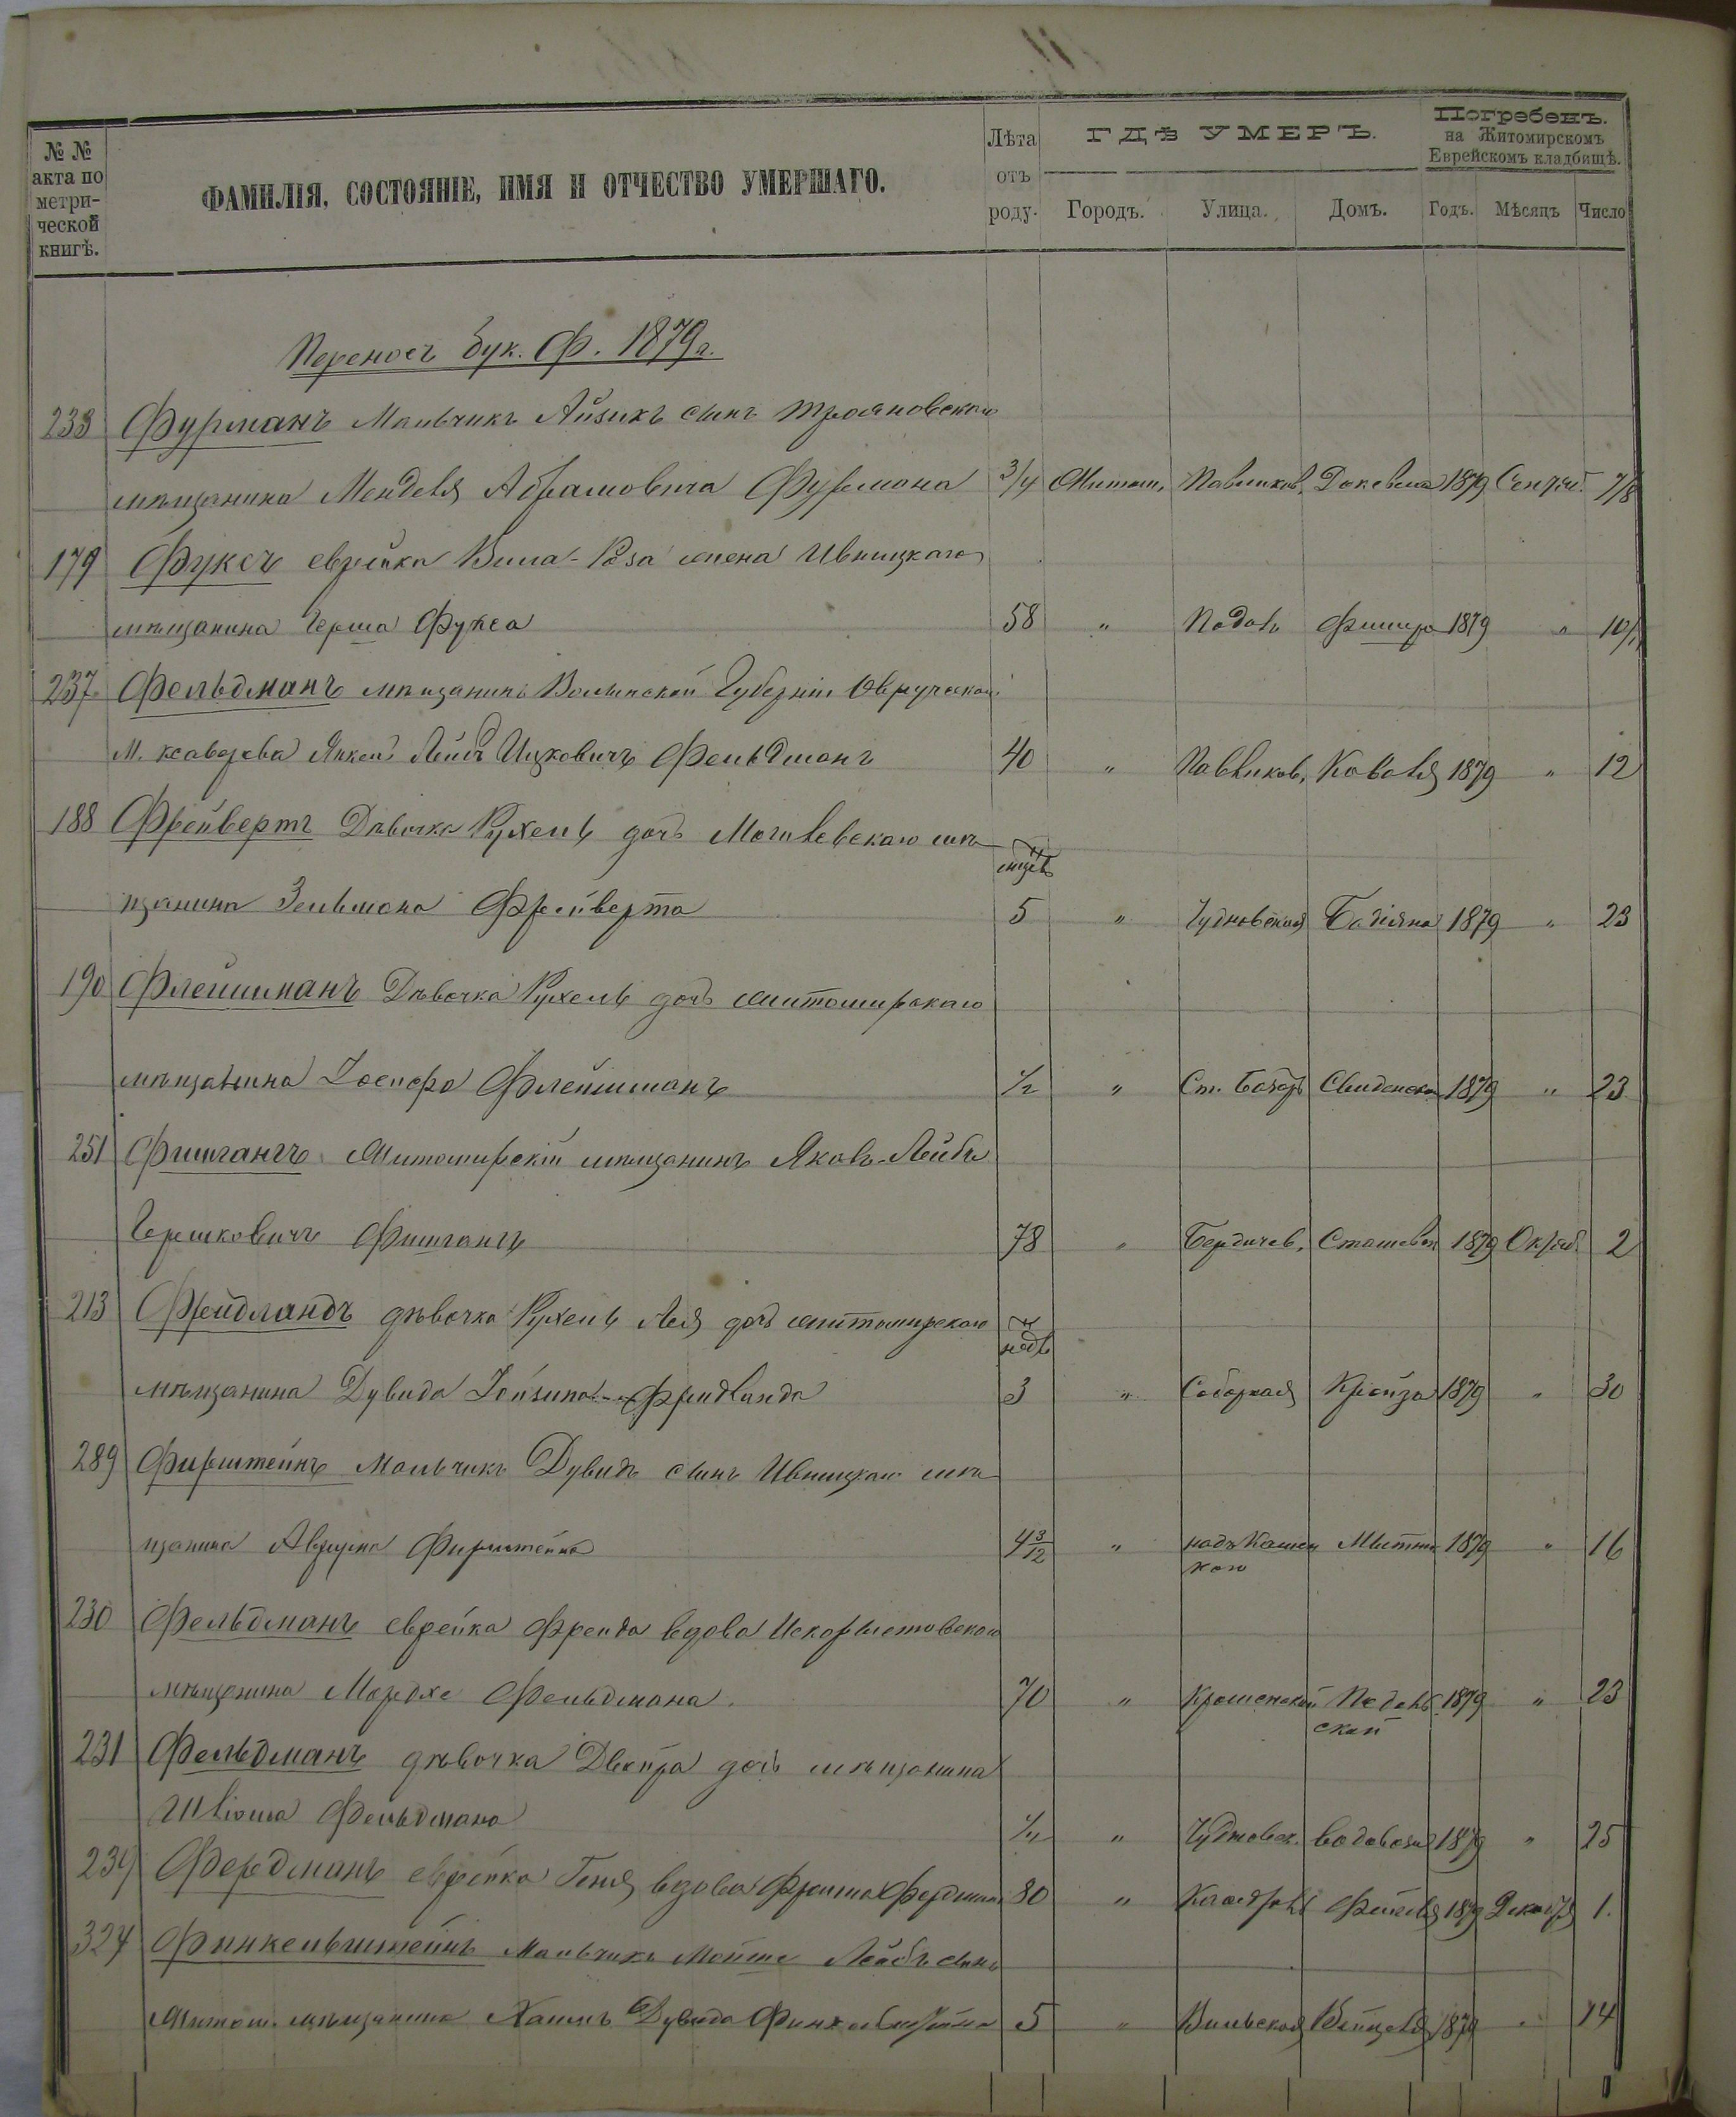 № №
акта по
метри-
ческой
книгѣ.
ФАМИЛІЯ, СОСТОЯНІЕ, ИМЯ И ОТЧЕСТВО УМЕРШАГО.
Лѣта
отъ
роду.
ГДѢ УМЕРЪ.
Городъ. Улица. Домъ.
Погребенъ.
на Житомирскомъ
Еврейскомъ кладбищѣ.
Годъ. Мѣсяцъ Число
Переносъ бук. Ф. 1879 г.
233 Фурманъ Мальчикъ Айзикъ сынъ трояновскаго
мѣщанина Менделя Абрамовича Фурмана 3/4 Житом. Павликов. 1879 Сентяб. 7/8
179 Фуксъ еврейка Роза жена Ивницкаго
мѣщанина Герша Фукса 58 " Подолъ Фишира 1879 "
237 Фельдманъ мѣщанинъ Волынской Губерніи Овручскаго
м. ксаверова Лейбъ Ицковичъ Фельдманъ 40 " Павликов. Коваля 1879 " 12
188 Фрейвертъ Дѣвочка Рухель дочь Могилевскаго мѣ-
щанина Зельмана Фрейверта 5 " Чудновская 1879 " 23
190 Флейшманъ Дѣвочка Рухель дочь житомирскаго
мѣщанина Іосифа Флейшманъ 1/2 " Ст. 1879 " 23
251 Фишгангъ Житомирскій мѣщанинъ Яковъ-Лейбъ
Гершковичъ Фишгангъ 78 " Бердичев. 1879 Октяб. 2
213 Фрейдландъ дѣвочка Рухель Лея дочь житомирскаго
мѣщанина Дувида Фридланда 3 " Соборная Кройза 1879 " 30
289 Фирштейнъ Мальчикъ Дувидъ сынъ Ивницкаго мѣ-
щанина Аврума Фирштейна 4 3/12 " надъ Камен
кою 1879 " 16
230 Фельдманъ еврейка Фрейда вдова Искоростовскаго
мѣщанина Мордхе Фельдмана 70 " Крошенской Подоль
ской 1879 " 23
231 Фельдманъ дѣвочка Двейра дочь мѣщанина
Шліома Фельдмана " Чудновск. Водовозъ 1879 " 25
239 Фердманъ еврейка Геня вдова Фроима Фердмана 80 " 1879 Декабря 1.
324 Финкельштейнъ Мальчикъ Мойше Лейбъ сынъ
Житом. мѣщанина Хаимъ Дувида Финкельштейна 5 " Вильская 1879 " 14